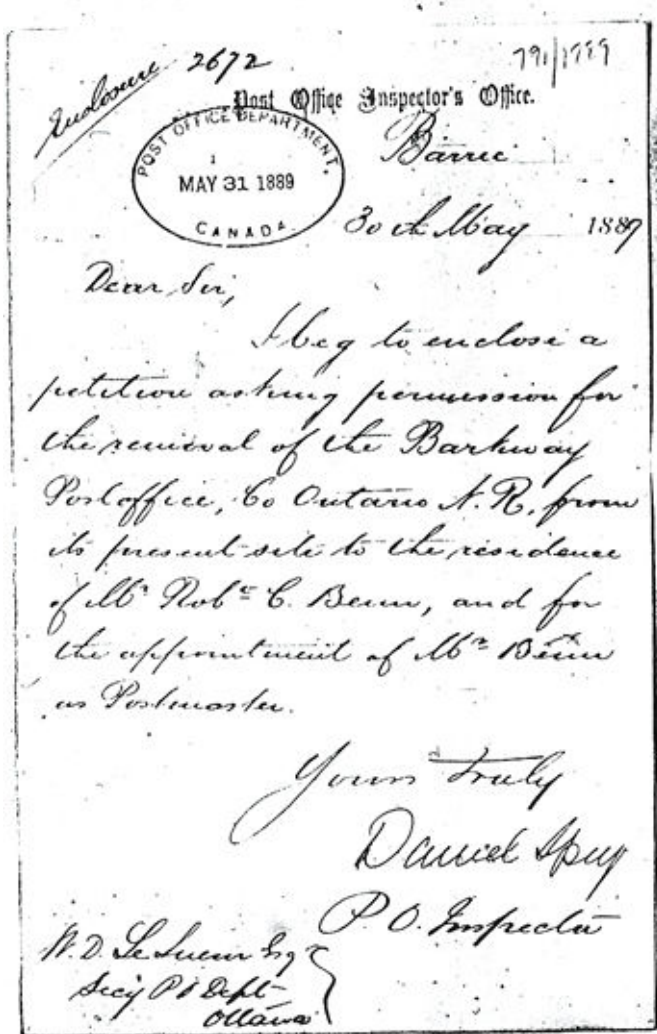 Enclosure 2672
791/1889
Post Office Inspector's Office.
POST OFFICE DEPARTMENT,
MAY 31 1889
CANADA
Barrie
30th May 1889
Dear Sir,
I beg to enclose a
petition asking permission for
the removal of the Barkway
Postoffice, Co Ontario N.R. from
its present site to the residence
of Mr Robt C. Benn, and for
the appointment of Mr Benn
as Postmaster.
Yours Truly
Daniel Spry
P.O. Inspector
W.D. Le Sueur Esqr
Secy P O Dept
Ottawa